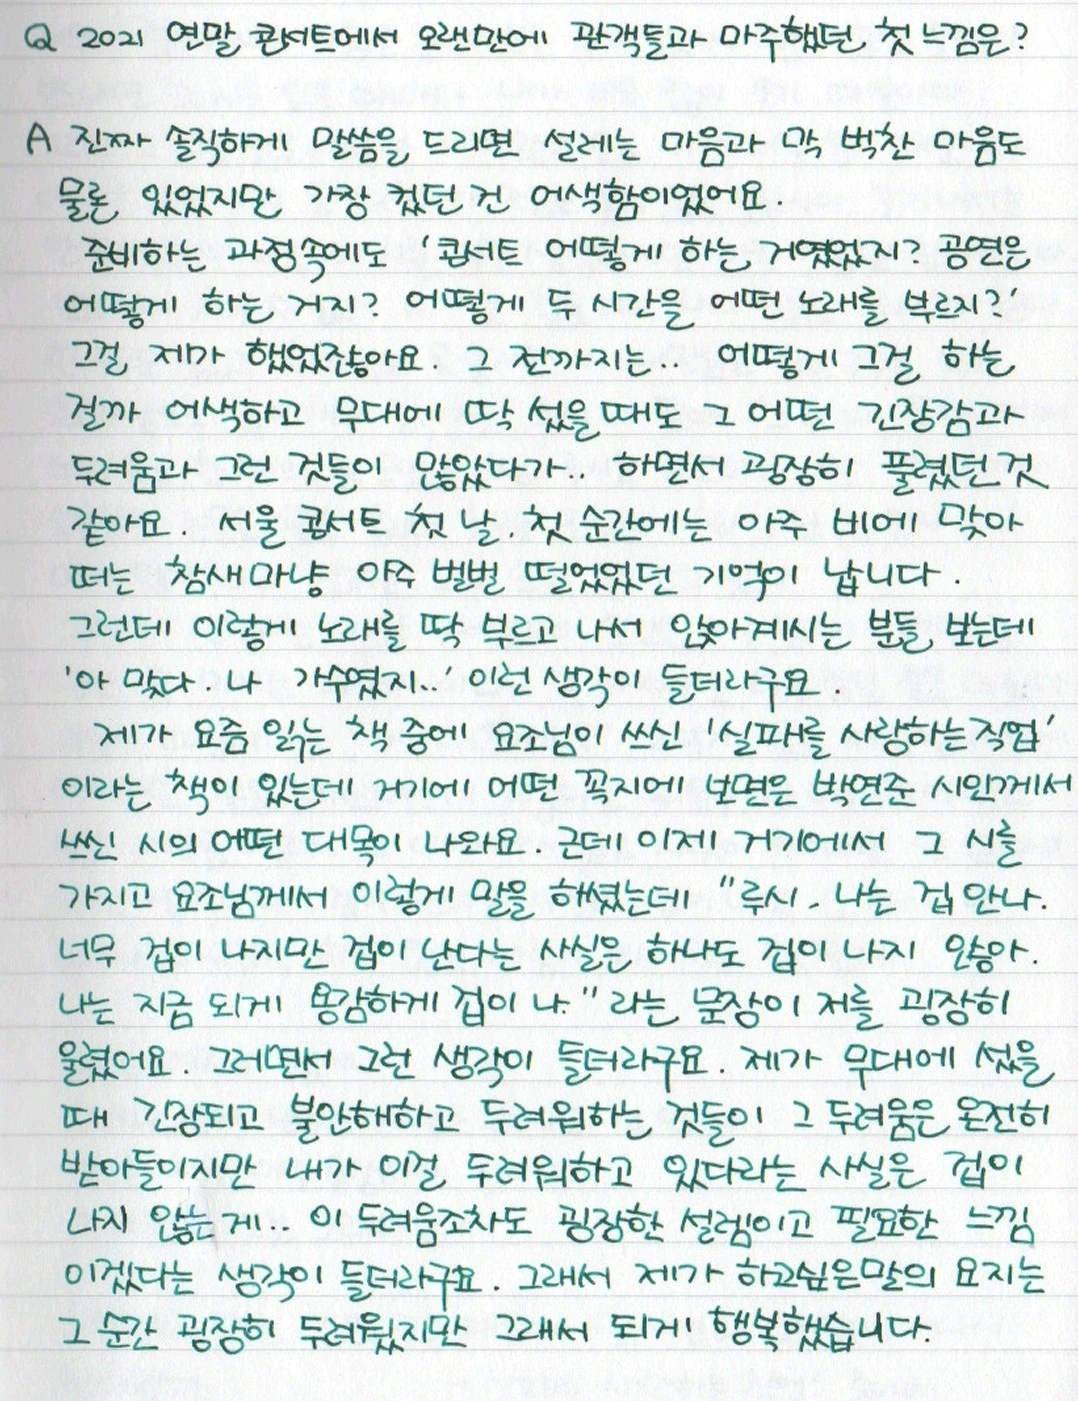 Q 2021 연말 콘서트에서 오랜만에 관객들과 마주했던 첫 느낌은?
A 진짜 솔직하게 말씀을 드리면 설레는 마음과 막 벅찬 마음도
물론 있었지만 가장 컸던 건 어색함이었어요.
준비하는 과정속에도 '콘서트 어떻게 하는 거였었지? 공연은
어떻게 하는 거지? 어떻게 두 시간을 어떤 노래를 부르지?'
그걸 제가 했었잖아요. 그 전까지는.. 어떻게 그걸 하는
걸까 어색하고 무대에 딱 섰을 때도 그 어떤 긴장감과
두려움과 그런 것들이 많았다가.. 하면서 굉장히 풀렸던 것
같아요. 서울 콘서트 첫 날. 첫 순간에는 아주 비에 맞아
떠는 참새마냥 아주 벌벌 떨었었던 기억이 납니다.
그런데 이렇게 노래를 딱 부르고 나서 앉아계시는 분들 보는데
'아 맞다. 나 가수였지..' 이런 생각이 들더라구요.
제가 요즘 읽는 책 중에 요조님이 쓰신 '실패를 사랑하는 직업'
이라는 책이 있는데 거기에 어떤 꼭지에 보면은 박연준 시인께서
쓰신 시의 어떤 대목이 나와요. 근데 이제 거기에서 그 시를
가지고 요조님께서 이렇게 말을 해셨는데 "루시. 나는 겁 안나.
너무 겁이 나지만 겁이 난다는 사실은 하나도 겁이 나지 않아.
나는 지금 되게 용감하게 겁이 나." 라는 문장이 저를 굉장히
울렸어요. 그러면서 그런 생각이 들더라구요. 제가 무대에 섰을
때 긴장되고 불안해하고 두려워하는 것들이 그 두려움은 온전히
받아들이지만 내가 이걸 두려워하고 있다라는 사실은 겁이
나지 않는 게.. 이 두려움조차도 굉장한 설렘이고 필요한 느낌
이겠다는 생각이 들더라구요. 그래서 제가 하고싶은말의 요지는
그 순간 굉장히 두려웠지만 그래서 되게 행복했습니다.